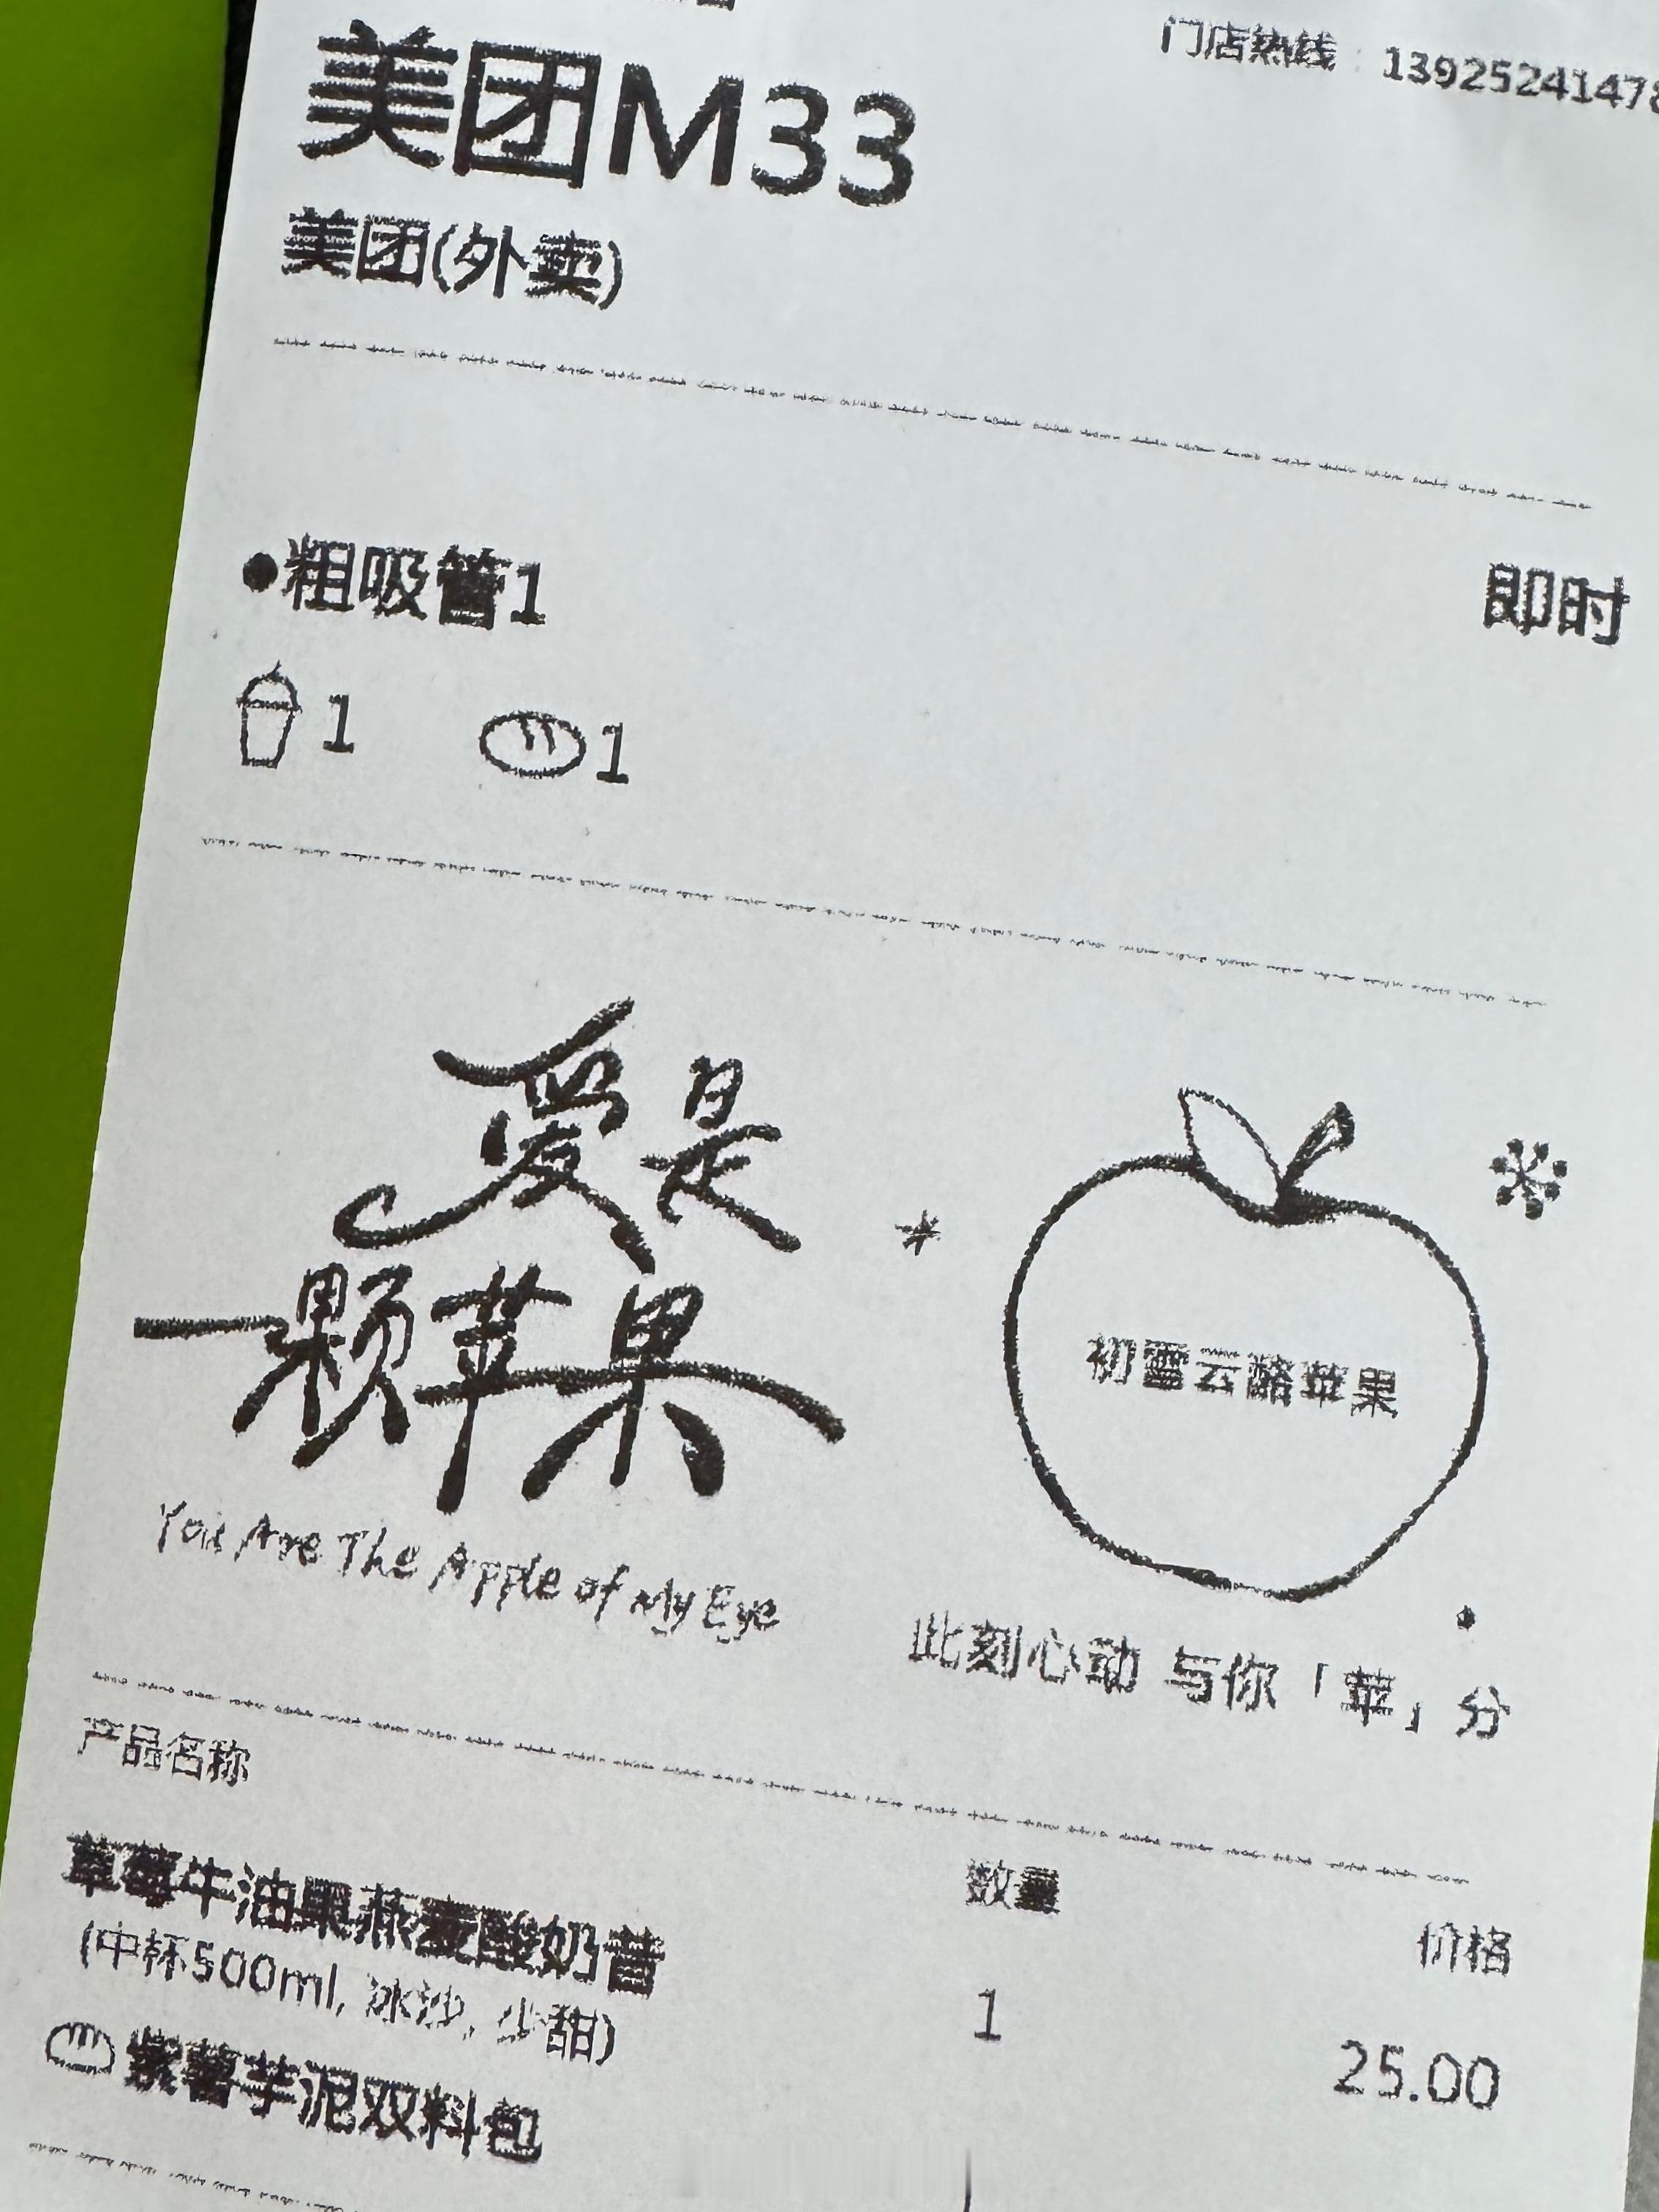 门店热线：1392524147
美团M33
美团(外卖)
●粗吸管1
即时
1 1
爱是
一颗苹果
You Are The Apple of My Eye
初雪云酪苹果
此刻心动 与你「苹」分
产品名称 数量 价格
草莓牛油果燕麦酸奶昔 1 25.00
(中杯500ml, 冰沙, 少甜)
紫薯芋泥双料包